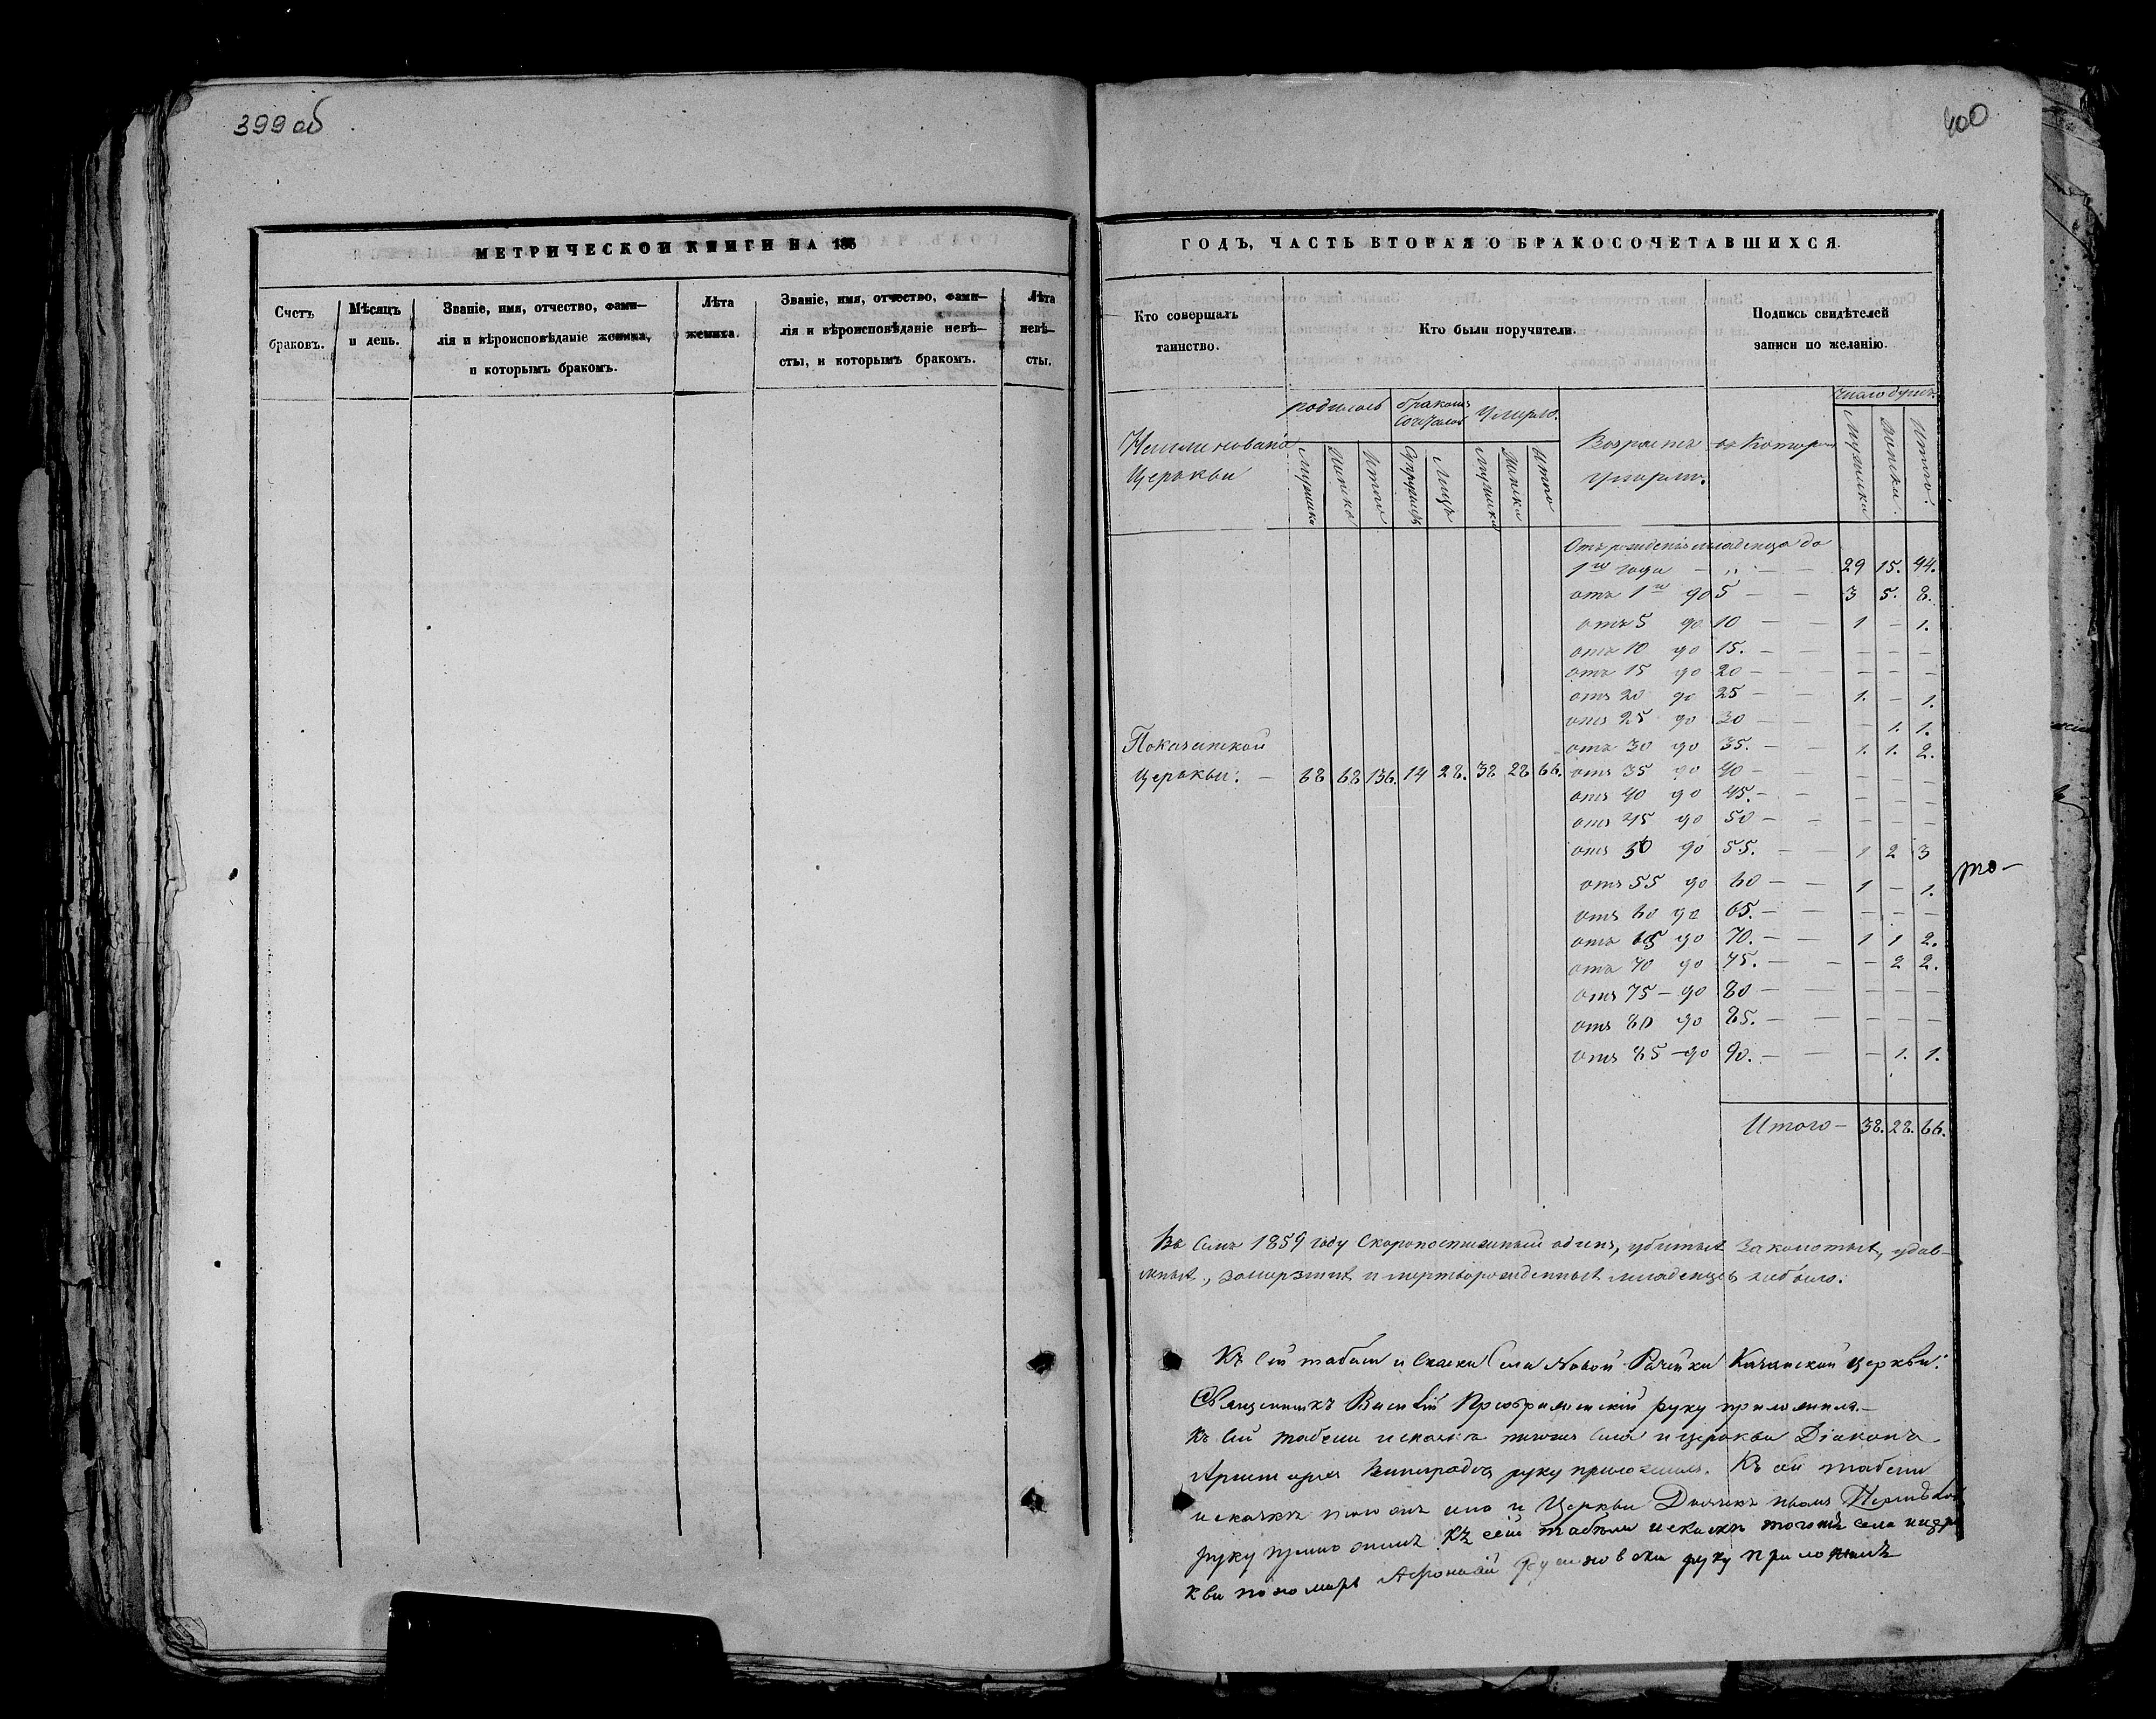 399 об
400
МЕТРИЧЕСКОЙ КНИГИ НА 185
Счетъ браковъ.
Мѣсяцъ и день.
Званіе, имя, отчество, фами-
лія и вѣроисповѣданіе жениха,
и которымъ бракомъ.
Лѣта жениха.
Званіе, имя, отчество, фами-
лія и вѣроисповѣданіе невѣ-
сты, и которымъ бракомъ.
Лѣта невѣ-
сты.
ГОДЪ, ЧАСТЬ ВТОРАЯ О БРАКОСОЧЕТАВШИХСЯ.
Кто совершалъ
таинство.
Кто были поручители.
Подпись свидѣтелей
записи по желанію.
Церькви
родилось
бракомъ
Умерло.
Возрастъ въ
умерло.
Итого
Итого
Итого
Отъ рожденія младенца до
1го года — „ — — 29 15. 44.
отъ 1го до 5 — — 3 5. 8.
отъ 5 до 10 — — 1 — 1.
отъ 10 до 15. — — — — —
отъ 15 до 20 — — — — —
отъ 20 до 25 — — 1. — 1.
отъ 25 до 30 — — — 1. 1.
отъ 30 до 35. — — 1. 1. 2.
церькви. — 68 68 136. 14 28. 38 28 66. отъ 35 до 40 — — — —
отъ 40 до 45. — — — — —
отъ 45 до 50 — — — — —
отъ 50 до 55. — — 1 2 3
то-
отъ 55 до 60 — — 1 — 1.
отъ 60 до 65. — — — — —
отъ 65 до 70. — — 1 1 2.
отъ 70 до 75. — — — 2 2.
отъ 75 — до 80 — — — — —
отъ 80 до 85. — — — — —
отъ 85 — до 90. — — — 1. 1.
Итого — 38. 28. 66.
Въ семъ 1859 году Скоропостижный одинъ, убитыхъ, удав-
мертворожденныхъ младенцевъ небыло.
Къ сей табели и Села Новой Рачейки Казанской церкви.
Священникъ Василій Преображенскій руку приложилъ.—
Къ сей табели тогожъ села и церькви Діаконъ
Виноградовъ руку приложилъ. Къ сей табели
тогожъ села и Церькви Дьячекъ
руку приложилъ Къ сей табели тогожъ села и цер
кви пономарь руку приложилъ